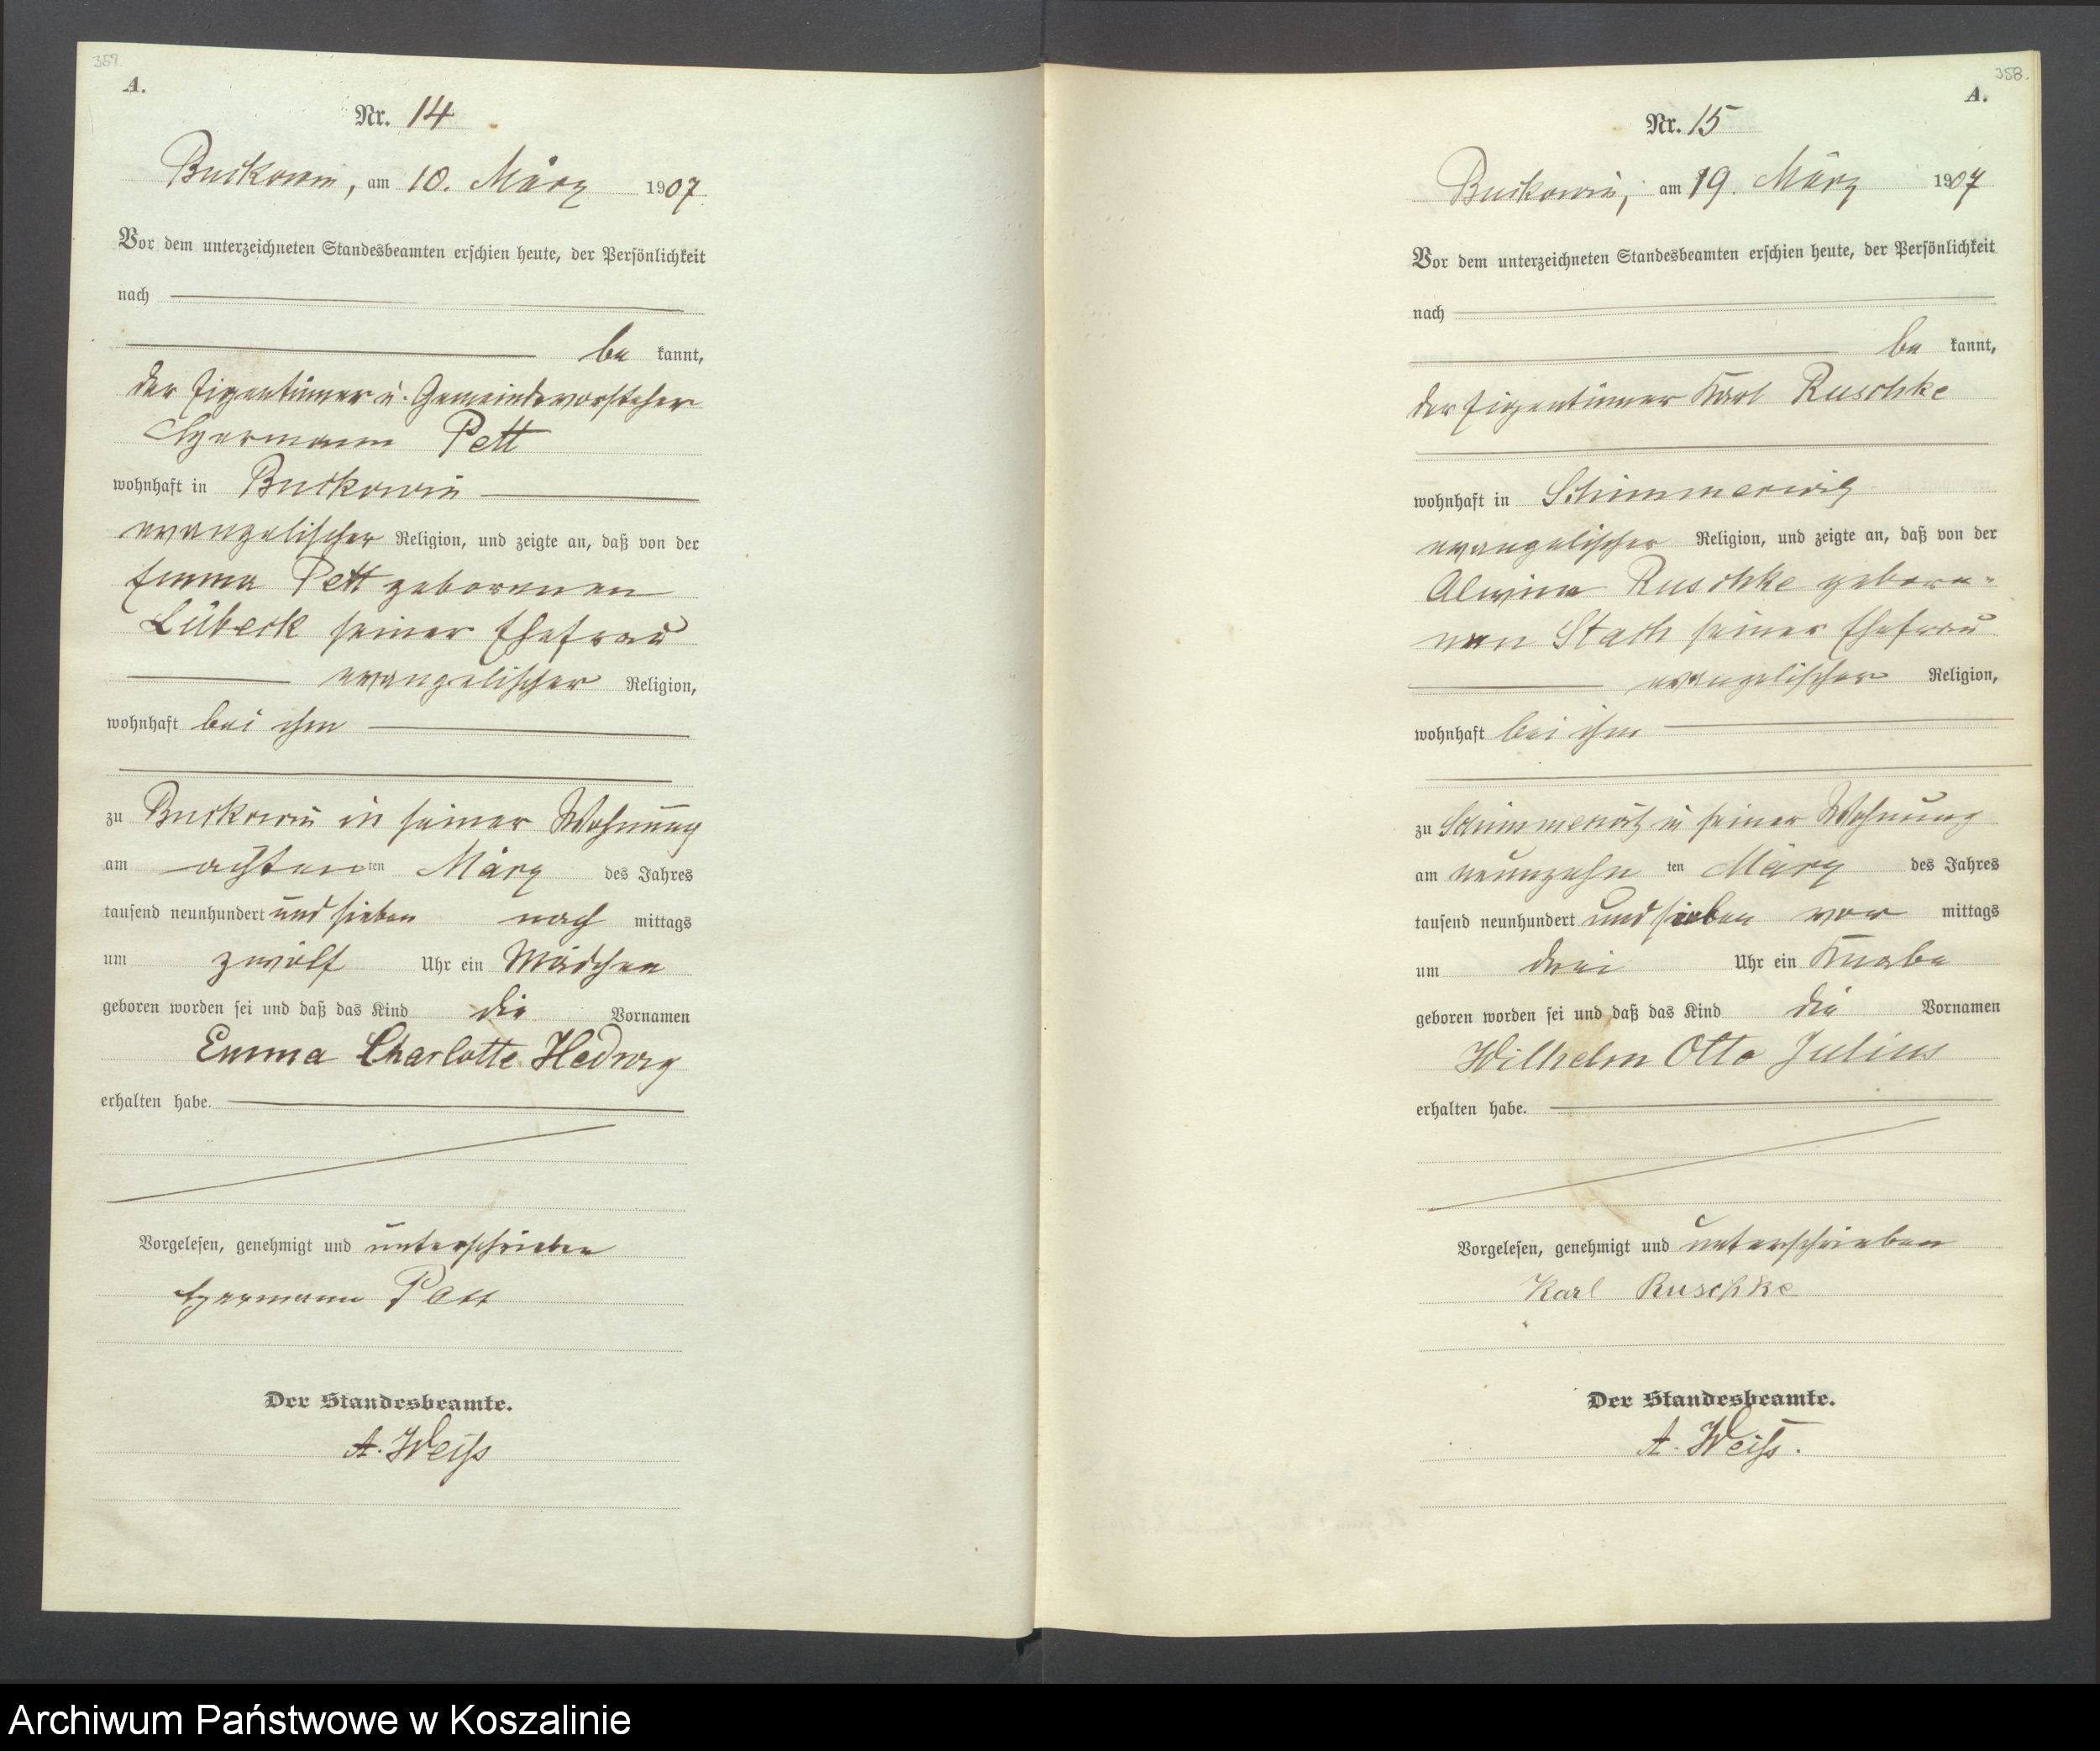 357.
A.
Nr. 14
Buckowin, am 10. März 1907.
Vor dem unterzeichneten Standesbeamten erschien heute, der Persönlichkeit
nach
be kannt,
der Eigentümer u. Gemeindevorsteher
Hermann Pett
wohnhaft in Buckowin
evangelischer Religion, und zeigte an, daß von der
Emma Pett geborenen
Lübeck seiner Ehefrau
evangelischer Religion,
wohnhaft bei ihm
zu Buckowin in seiner Wohnung
am achten ten März des Jahres
tausend neunhundert und sieben nach mittags
um zwölf Uhr ein Mädchen
geboren worden sei und daß das Kind die Vornamen
Emma Charlotte Hedwig
erhalten habe.
Vorgelesen, genehmigt und unterschrieben
Hermann Pett
Der Standesbeamte.
A. Weiß
358.
A.
Nr. 15
Buckowin, am 19. März 1907
Vor dem unterzeichneten Standesbeamten erschien heute, der Persönlichkeit
nach
be kannt,
der Eigentümer Karl Ruschke
wohnhaft in Schimmerwitz
evangelischer Religion, und zeigte an, daß von der
Alwine Ruschke gebore-
nen Stach seiner Ehefrau
evangelischer Religion,
wohnhaft bei ihm
zu Schimmerwitz in seiner Wohnung
am neunzehn ten März des Jahres
tausend neunhundert und sieben vor mittags
um drei Uhr ein Knabe
geboren worden sei und daß das Kind die Vornamen
Wilhelm Otto Julius
erhalten habe.
Vorgelesen, genehmigt und unterschrieben
Karl Ruschke
Der Standesbeamte.
A. Weiß.
Archiwum Państwowe w Koszalinie